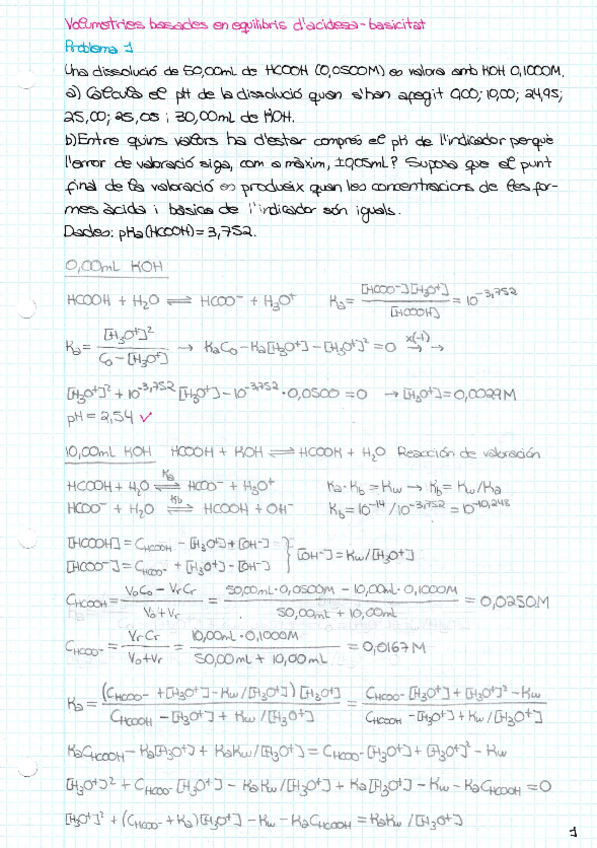 Volumetries basades en equilibris d'acidesa-basicitat
Problema 1
Una dissolució de 50,00mL de HCOOH (0,0500M) es valora amb KOH 0,1000M.
a) Calcula el pH de la dissolució quan s'han afegit 0,00; 10,00; 24,95;
25,00; 25,05 i 30,00mL de KOH.
b) Entre quins valors ha d'estar comprés el pH de l'indicador perquè
l'error de valoració siga, com a màxim, ±0,05mL? Suposa que el punt
final de la valoració es produeix quan les concentracions de les for-
mes àcida i bàsica de l'indicador són iguals.
Dades: pKa(HCOOH) = 3,752.
0,00mL KOH
HCOOH + H₂O ⇌ HCOO⁻ + H₃O⁺ Ka = [HCOO⁻][H₃O⁺] / [HCOOH] = 10^-3,752
Ka = [H₃O⁺]² / C₀ - [H₃O⁺] → KaC₀ - Ka[H₃O⁺] - [H₃O⁺]² = 0 x(-1) → →
[H₃O⁺]² + 10^-3,752 [H₃O⁺] - 10^-3,752 · 0,0500 = 0 → [H₃O⁺] = 0,0029M
pH = 2,54 ✓
10,00mL KOH HCOOH + KOH ⇌ HCOOK + H₂O Reacción de valoración
HCOOH + H₂O ⇌ Ka HCOO⁻ + H₃O⁺ Ka · Kb = Kw → Kb = Kw/Ka
HCOO⁻ + H₂O ⇌ Kb HCOOH + OH⁻ Kb = 10^-14 / 10^-3,752 = 10^-10,248
[HCOOH] = C_HCOOH - [H₃O⁺] + [OH⁻]
[HCOO⁻] = C_HCOO⁻ + [H₃O⁺] - [OH⁻] } [OH⁻] = Kw/[H₃O⁺]
C_HCOOH = V₀C₀ - VrCr / V₀+Vr = 50,00mL·0,0500M - 10,00mL·0,1000M / 50,00mL + 10,00mL = 0,0250M
C_HCOO⁻ = VrCr / V₀+Vr = 10,00mL·0,1000M / 50,00mL + 10,00mL = 0,0167M
Ka = (C_HCOO⁻ + [H₃O⁺] - Kw/[H₃O⁺]) [H₃O⁺] / C_HCOOH - [H₃O⁺] + Kw/[H₃O⁺] = C_HCOO⁻ [H₃O⁺] + [H₃O⁺]² - Kw / C_HCOOH - [H₃O⁺] + Kw/[H₃O⁺]
KaC_HCOOH - Ka[H₃O⁺] + KaKw/[H₃O⁺] = C_HCOO⁻ [H₃O⁺] + [H₃O⁺]² - Kw
[H₃O⁺]² + C_HCOO⁻ [H₃O⁺] - KaKw/[H₃O⁺] + Ka[H₃O⁺] - Kw - KaC_HCOOH = 0
[H₃O⁺]² + (C_HCOO⁻ + Ka)[H₃O⁺] - Kw - KaC_HCOOH = KaKw/[H₃O⁺]
1